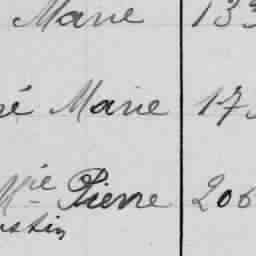 Marie 133
é Marie 17
Mie Pierre 206
ustin